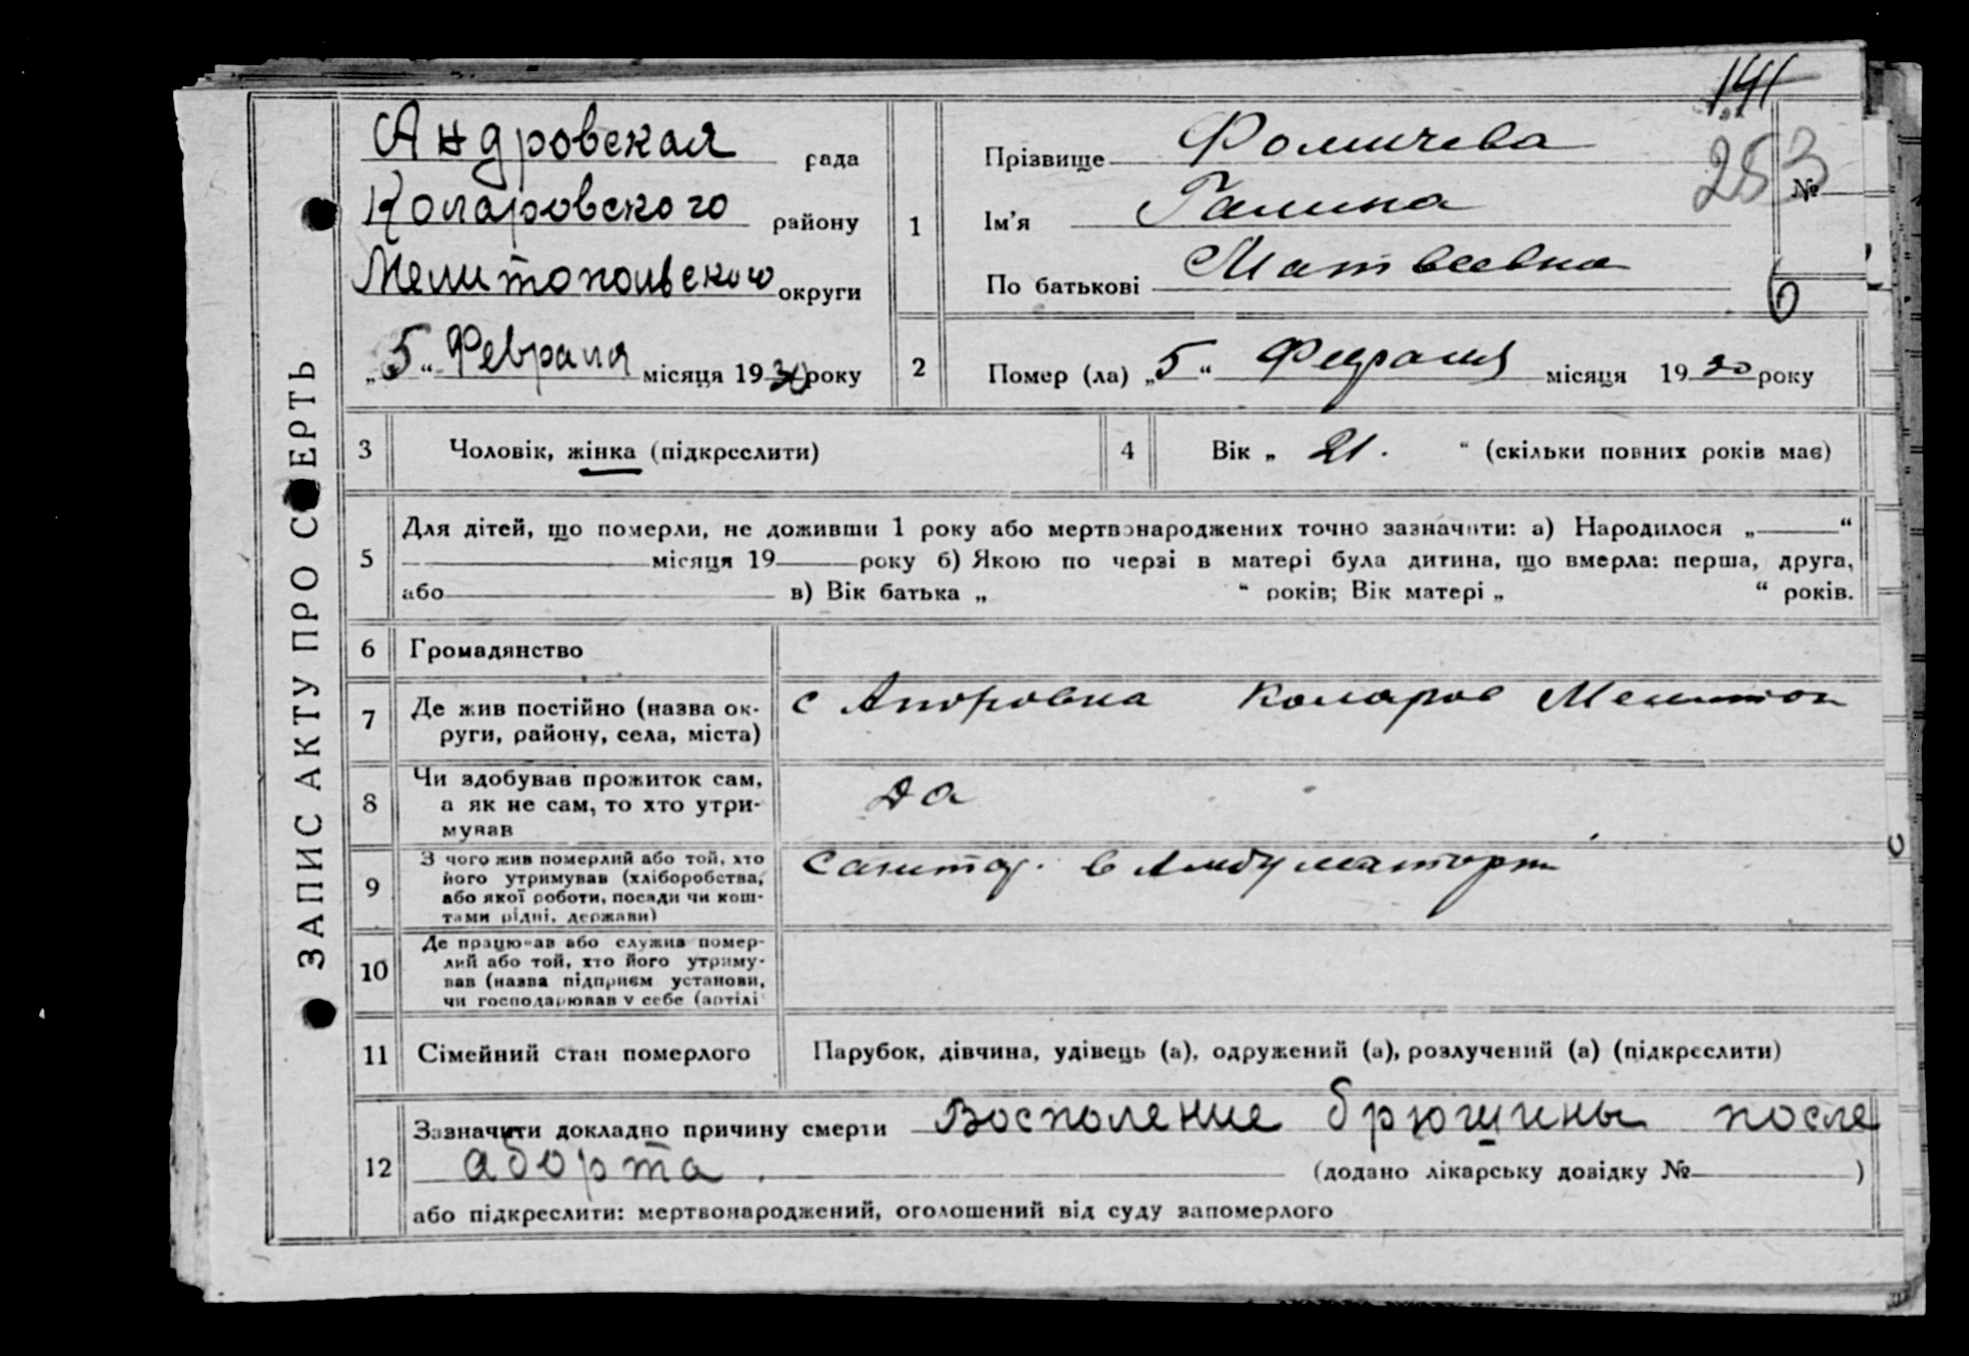 141
253
ЗАПИС АКТУ ПРО СМЕРТЬ
Андровская рада
Коларовского району
Мелитопольского округи
„5“ Февраля місяця 1930 року
1
Прізвище Фомичева
Ім'я Галина
По батькові Матвеевна
№
6
2
Помер (ла) „5“ Февраля місяця 1930 року
3 Чоловік, жінка (підкреслити)
4 Вік „ 21. “ (скільки повних років має)
5 Для дітей, що померли, не доживши 1 року або мертвонароджених точно зазначити: а) Народилося „ “
місяця 19 року б) Якою по черзі в матері була дитина, що вмерла: перша, друга,
або в) Вік батька „ “ років; Вік матері „ “ років.
6 Громадянство
7 Де жив постійно (назва ок-
руги, району, села, міста)
с Андровка Коларов Мелитоп
8 Чи здобував прожиток сам,
а як не сам, то хто утри-
мував
да
9 З чого жив померлий або той, хто
його утримував (хліборобства,
або якої роботи, посади чи кош-
тами рідні, держави)
Санитар. в Амбулатории
10 Де працював або служив помер-
лий або той, хто його утриму-
вав (назва підприєм установи,
чи господарював у себе (артілі
11 Сімейний стан померлого
Парубок, дівчина, удівець (а), одружений (а), розлучений (а) (підкреслити)
12 Зазначити докладно причину смерти Восполение брюшины после
аборта. (додано лікарську довідку № )
або підкреслити: мертвонароджений, оголошений від суду запомерлого